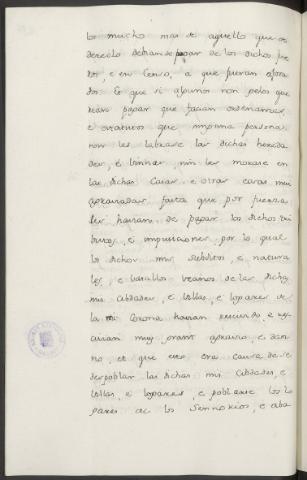 los mucho mas de aquello que de
derecho debian de pagar de los dichos fue
ros, e en Censo, a que fueran afora
dos. E que si algunos non pelos que
rian pagar que facian ordenanzas
e estatutos que ninguna persona
non les labrase las dichas hereda
des, e vinnas, nin les morase en
las dichas Casas, e otras cosas mui
agraviadas fasta que por fuerza
les havian de pagar los dichos tri
butos, e imposiciones, por lo qual
los dichos mis subditos, e natura
les, e vasallos vecinos de las dichas
mis Cibdades, e Villas, e logares de
la mi Corona havian rescivido, e res
civian muy grant agravio, e dan
no, et que esto era causa de se
despoblar las dichas mis Cibdades, e
Villas, e logares, e poblarse los lo
gares de los Sennorios, e aba